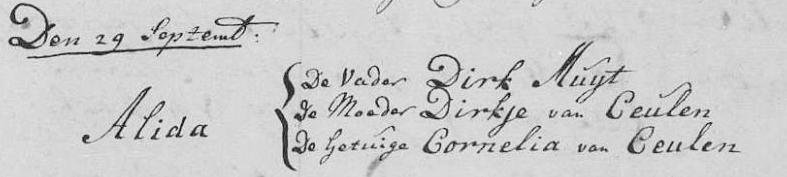 Den 29 Septemb:
De Vader Dirk Muyt
Alida de Moeder Dirkje van Ceulen
de Getuige Cornelia van Ceulen